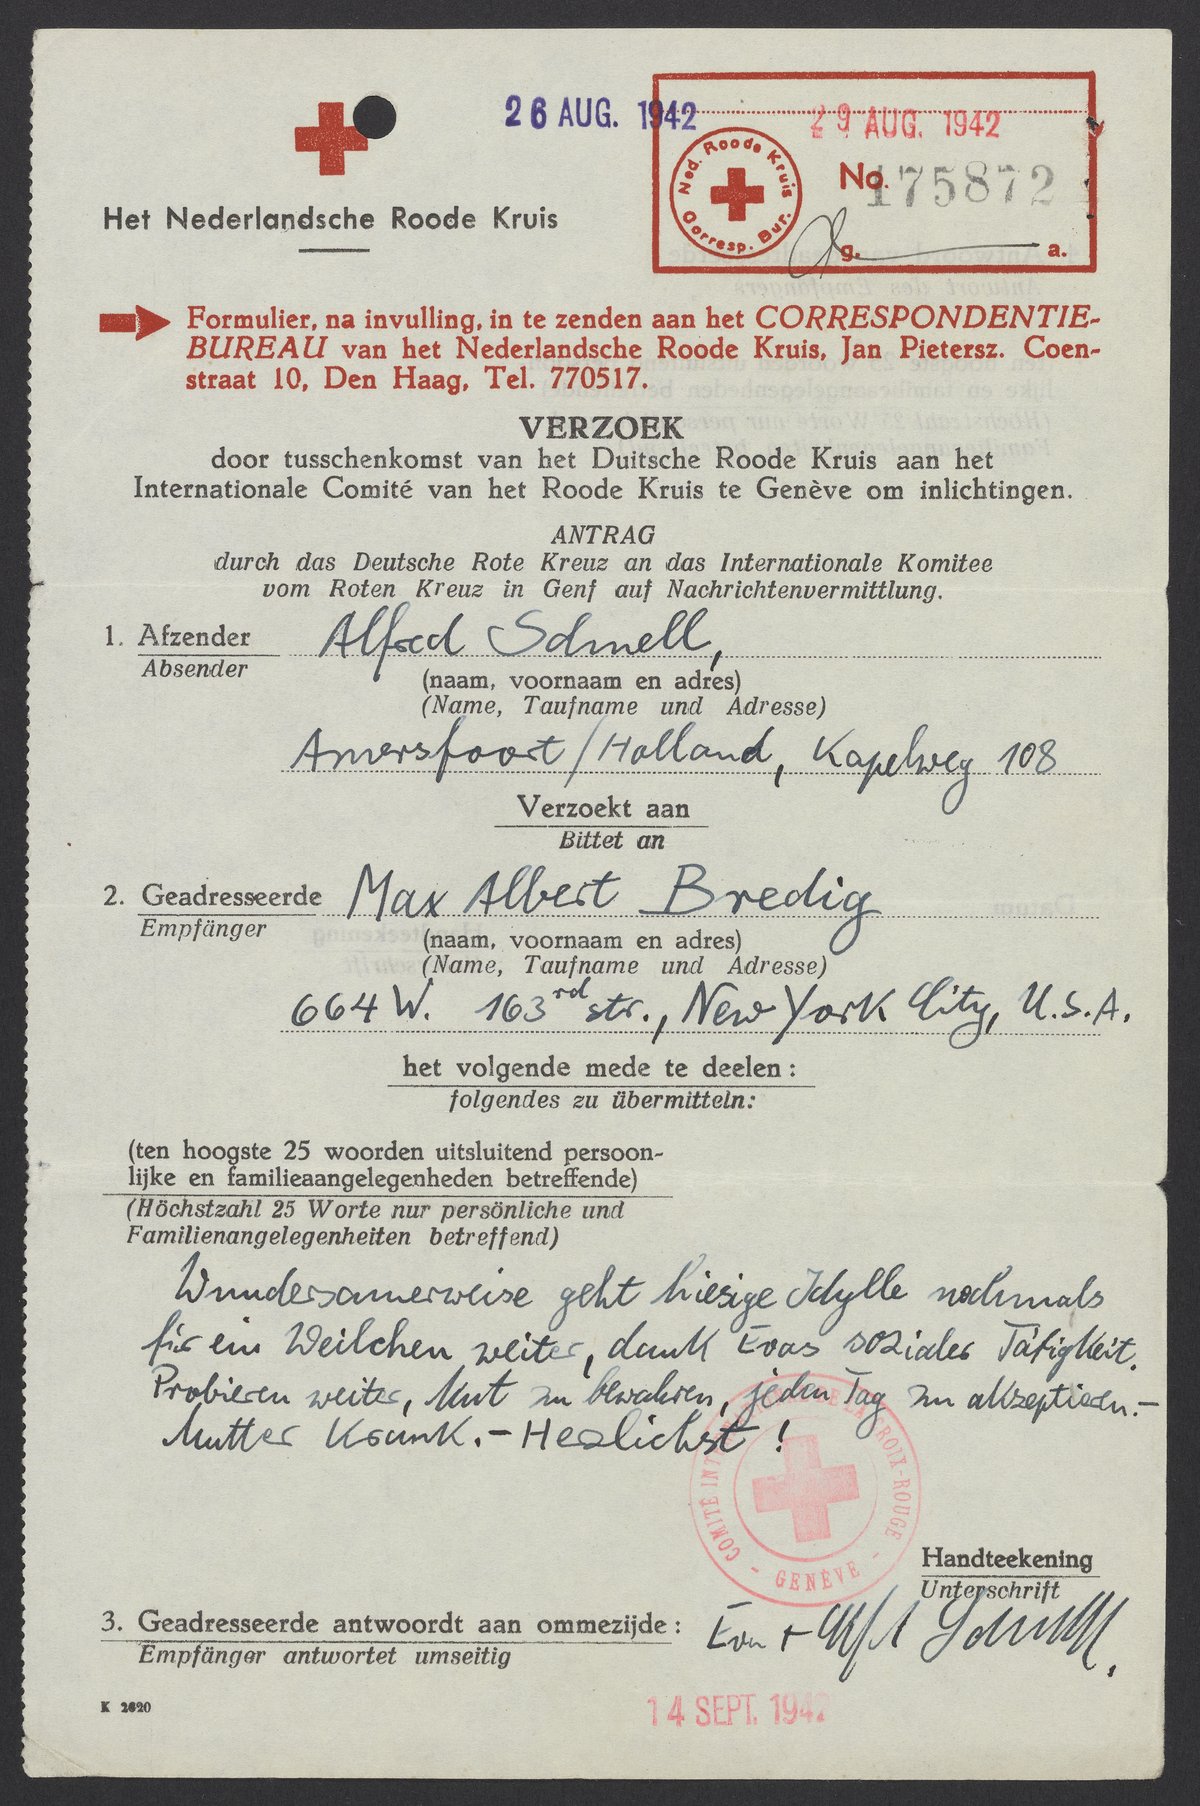 26 AUG. 1942
29 AUG. 1942
Ned. Roode Kruis
Corresp. Bur.
No. 175872
g. a.
Het Nederlandsche Roode Kruis
Formulier, na invulling, in te zenden aan het CORRESPONDENTIE-
BUREAU van het Nederlandsche Roode Kruis, Jan Pietersz. Coen-
straat 10, Den Haag, Tel. 770517.
VERZOEK
door tusschenkomst van het Duitsche Roode Kruis aan het
Internationale Comité van het Roode Kruis te Genève om inlichtingen.
ANTRAG
durch das Deutsche Rote Kreuz an das Internationale Komitee
vom Roten Kreuz in Genf auf Nachrichtenvermittlung.
1. Afzender Alfred Schnell,
Absender
(naam, voornaam en adres)
(Name, Taufname und Adresse)
Amersfoort / Holland, Kapelweg 108
Verzoekt aan
Bittet an
2. Geadresseerde Max Albert Bredig
Empfänger
(naam, voornaam en adres)
(Name, Taufname und Adresse)
664 W. 163rd str., New York City, U.S.A.
het volgende mede te deelen:
folgendes zu übermitteln:
(ten hoogste 25 woorden uitsluitend persoon-
lijke en familieaangelegenheden betreffende)
(Höchstzahl 25 Worte nur persönliche und
Familienangelegenheiten betreffend)
Wundersamerweise geht hiesige Idylle nochmals
für ein Weilchen weiter, dank Evas sozialer Tätigkeit.
Probieren weiter, Mut zu bewahren, jeden Tag zu akzeptieren.-
Mutter krank. - Herzlichst!
COMITÉ INTERNATIONAL DE LA CROIX-ROUGE
- GENÈVE -
Handteekening
Unterschrift
3. Geadresseerde antwoordt aan ommezijde:
Empfänger antwortet umseitig
Eva + Alfred Schnell.
K 2620
14 SEPT. 1942